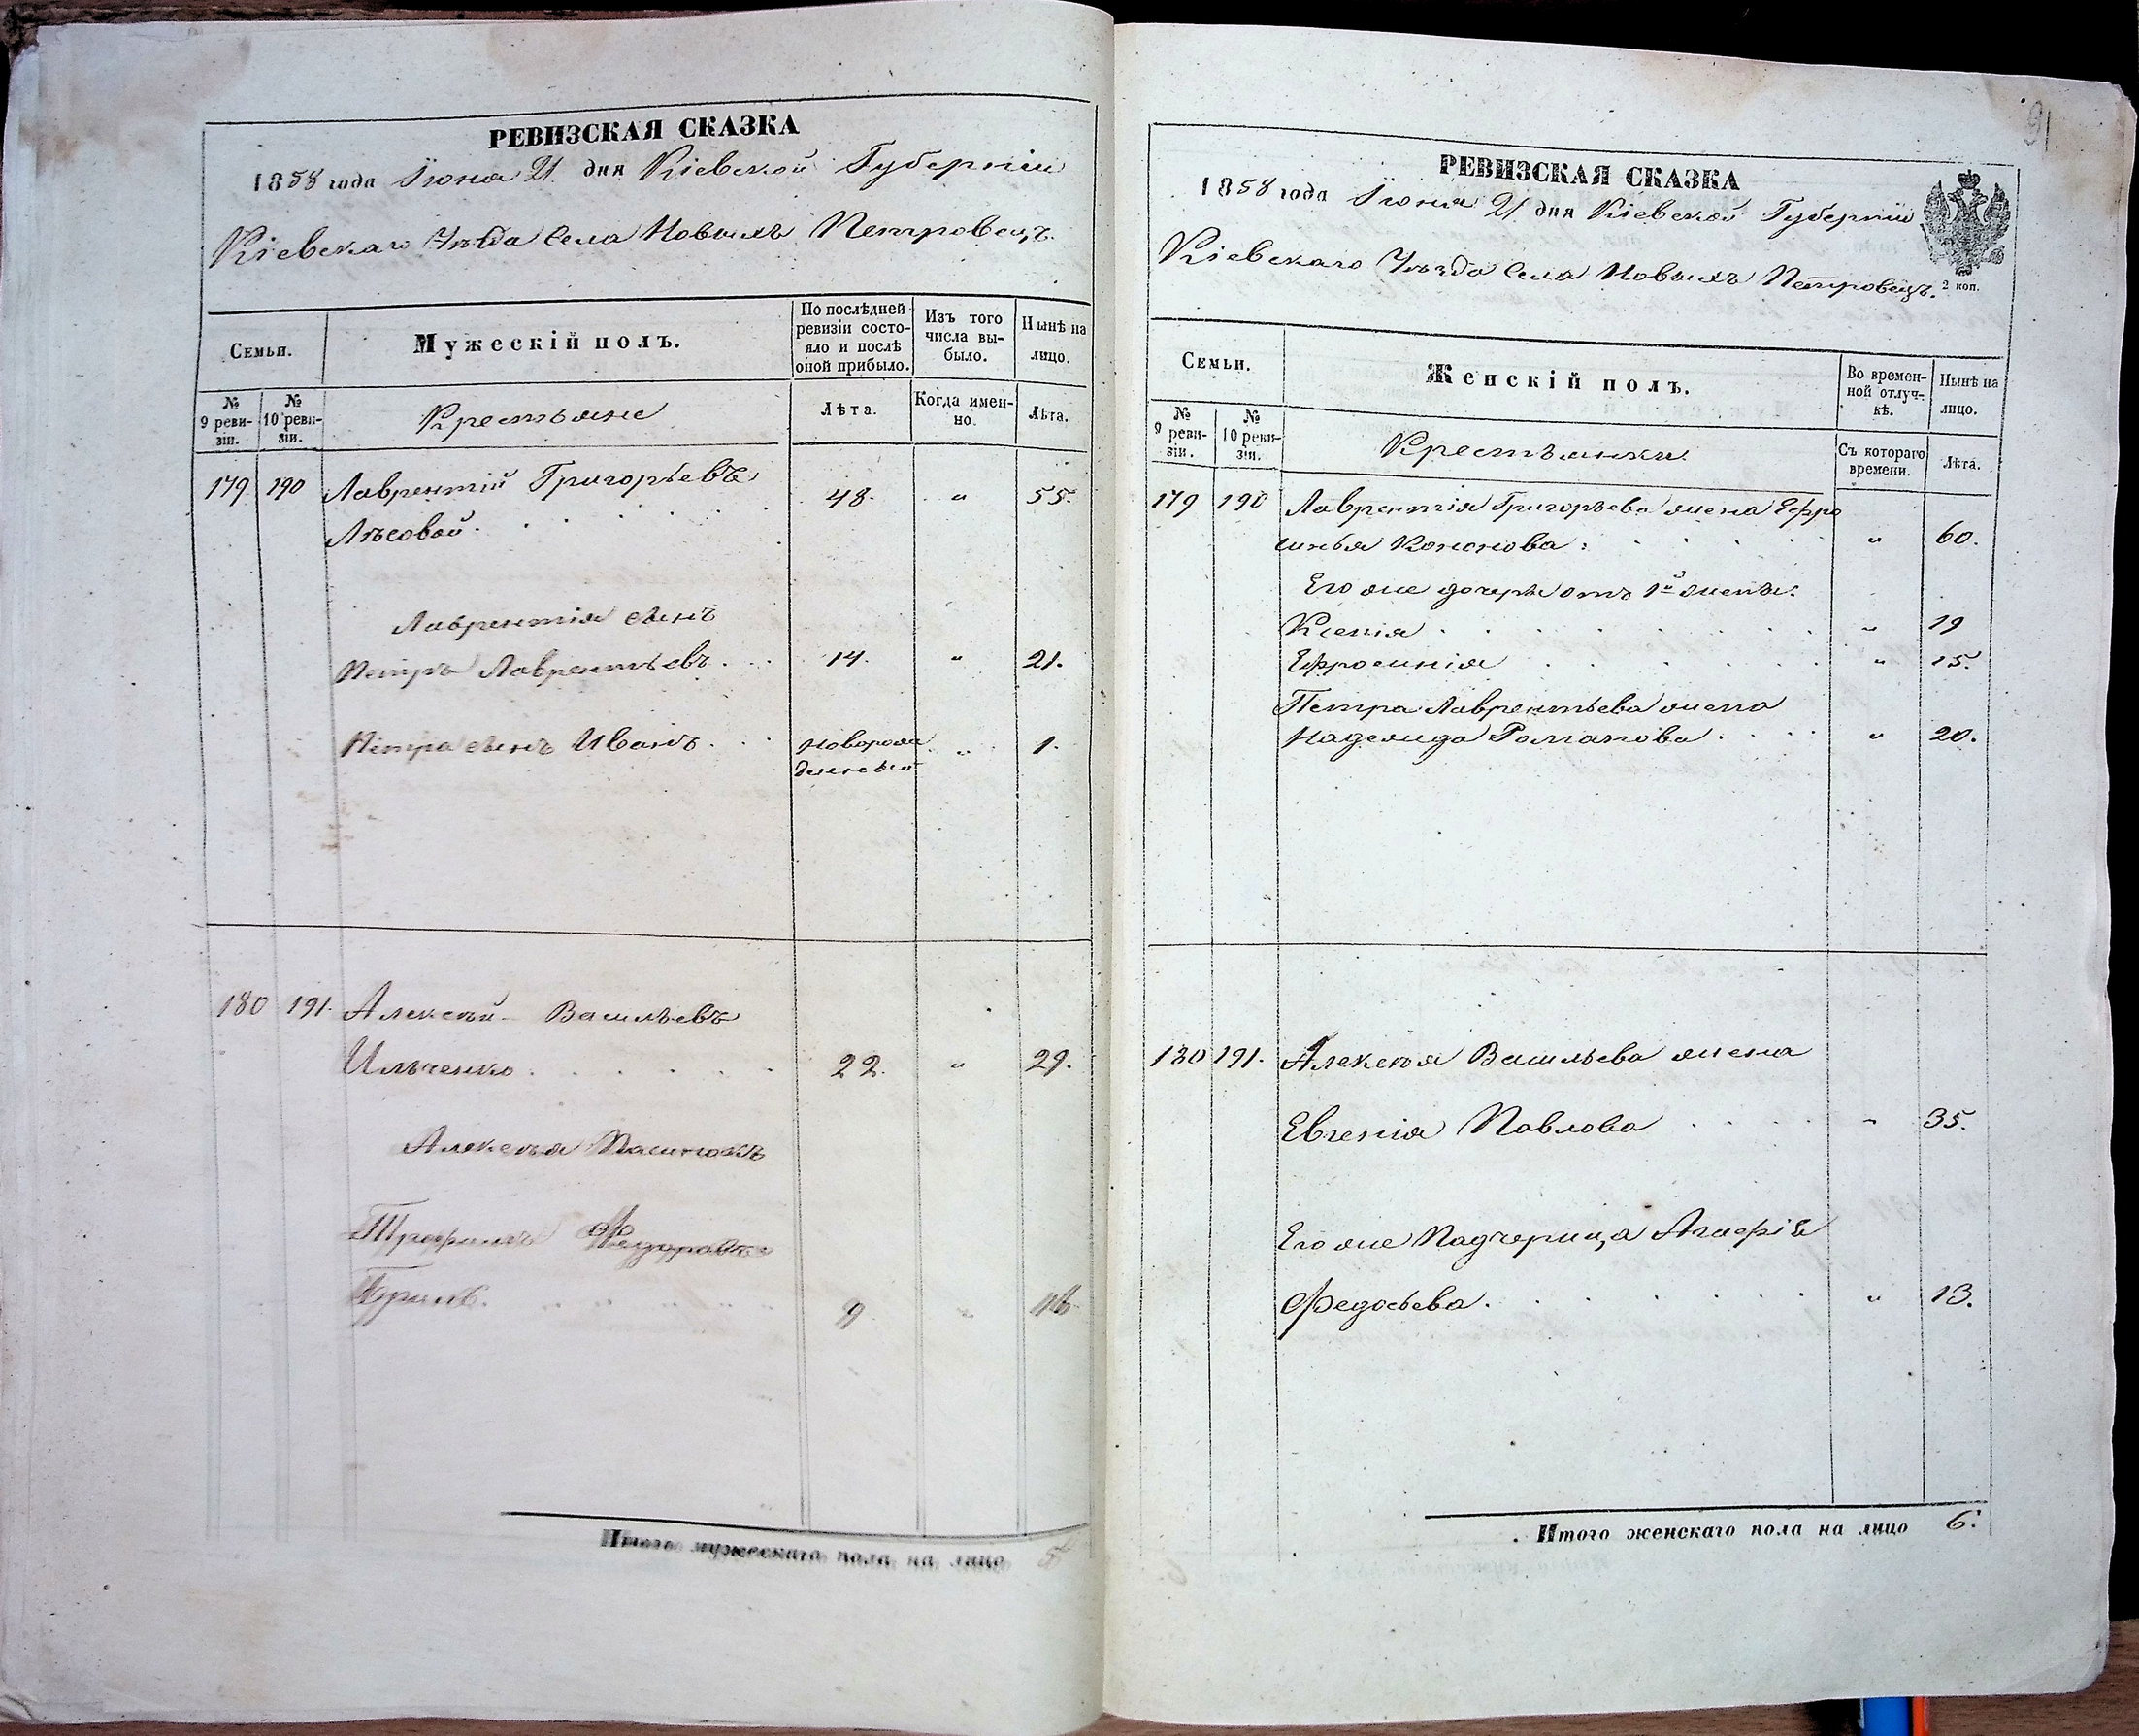 РЕВИЗСКАЯ СКАЗКА
1858 года Іюня 21 дня Кіевской Губерніи
Кіевскаго Уѣзда Села Новыхъ Петровецъ.
Семьи.
Мужескій полъ.
По послѣдней ревизіи состояло и послѣ оной прибыло.
Изъ того числа выбыло.
Нынѣ на лицо.
№ 9 ревизіи.
№ 10 ревизіи.
Крестьяне
Лѣта.
Когда именно.
Лѣта.
179 190 Лаврентій Григорьевъ 48. " 55.
Лѣсовой.
Лаврентія сынъ
Петръ Лаврентьевъ. 14. " 21.
Петра сынъ Иванъ. новорож " 1.
денный
180 191. Алексѣй Васильевъ
Ильченко 22. " 29.
Алексѣя Пасынокъ
Трофимъ Федоровъ
9 " 16
Итого мужескаго пола на лицо 5
91
РЕВИЗСКАЯ СКАЗКА
1858 года Іюня 21 дня Кіевской Губерніи
Кіевскаго Уѣзда Села Новыхъ Петровецъ.
2 коп.
Семьи.
Женскій полъ.
Во временной отлучкѣ.
Нынѣ на лицо.
№ 9 ревизіи.
№ 10 ревизіи.
Крестьянки
Съ котораго времени.
Лѣта.
179 190 Лаврентія Григорьева жена Ефро
синья Кононова " 60.
Его же дочери отъ 1й жены.
Ксенія " 19
Ефросинія " 15.
Петра Лаврентьева жена
Надежда Романова " 20.
180 191. Алексѣя Васильева жена
Евгенія Павлова " 35.
Его же Падчерица Агафія
Федосьева. " 13.
Итого женскаго пола на лицо 6.